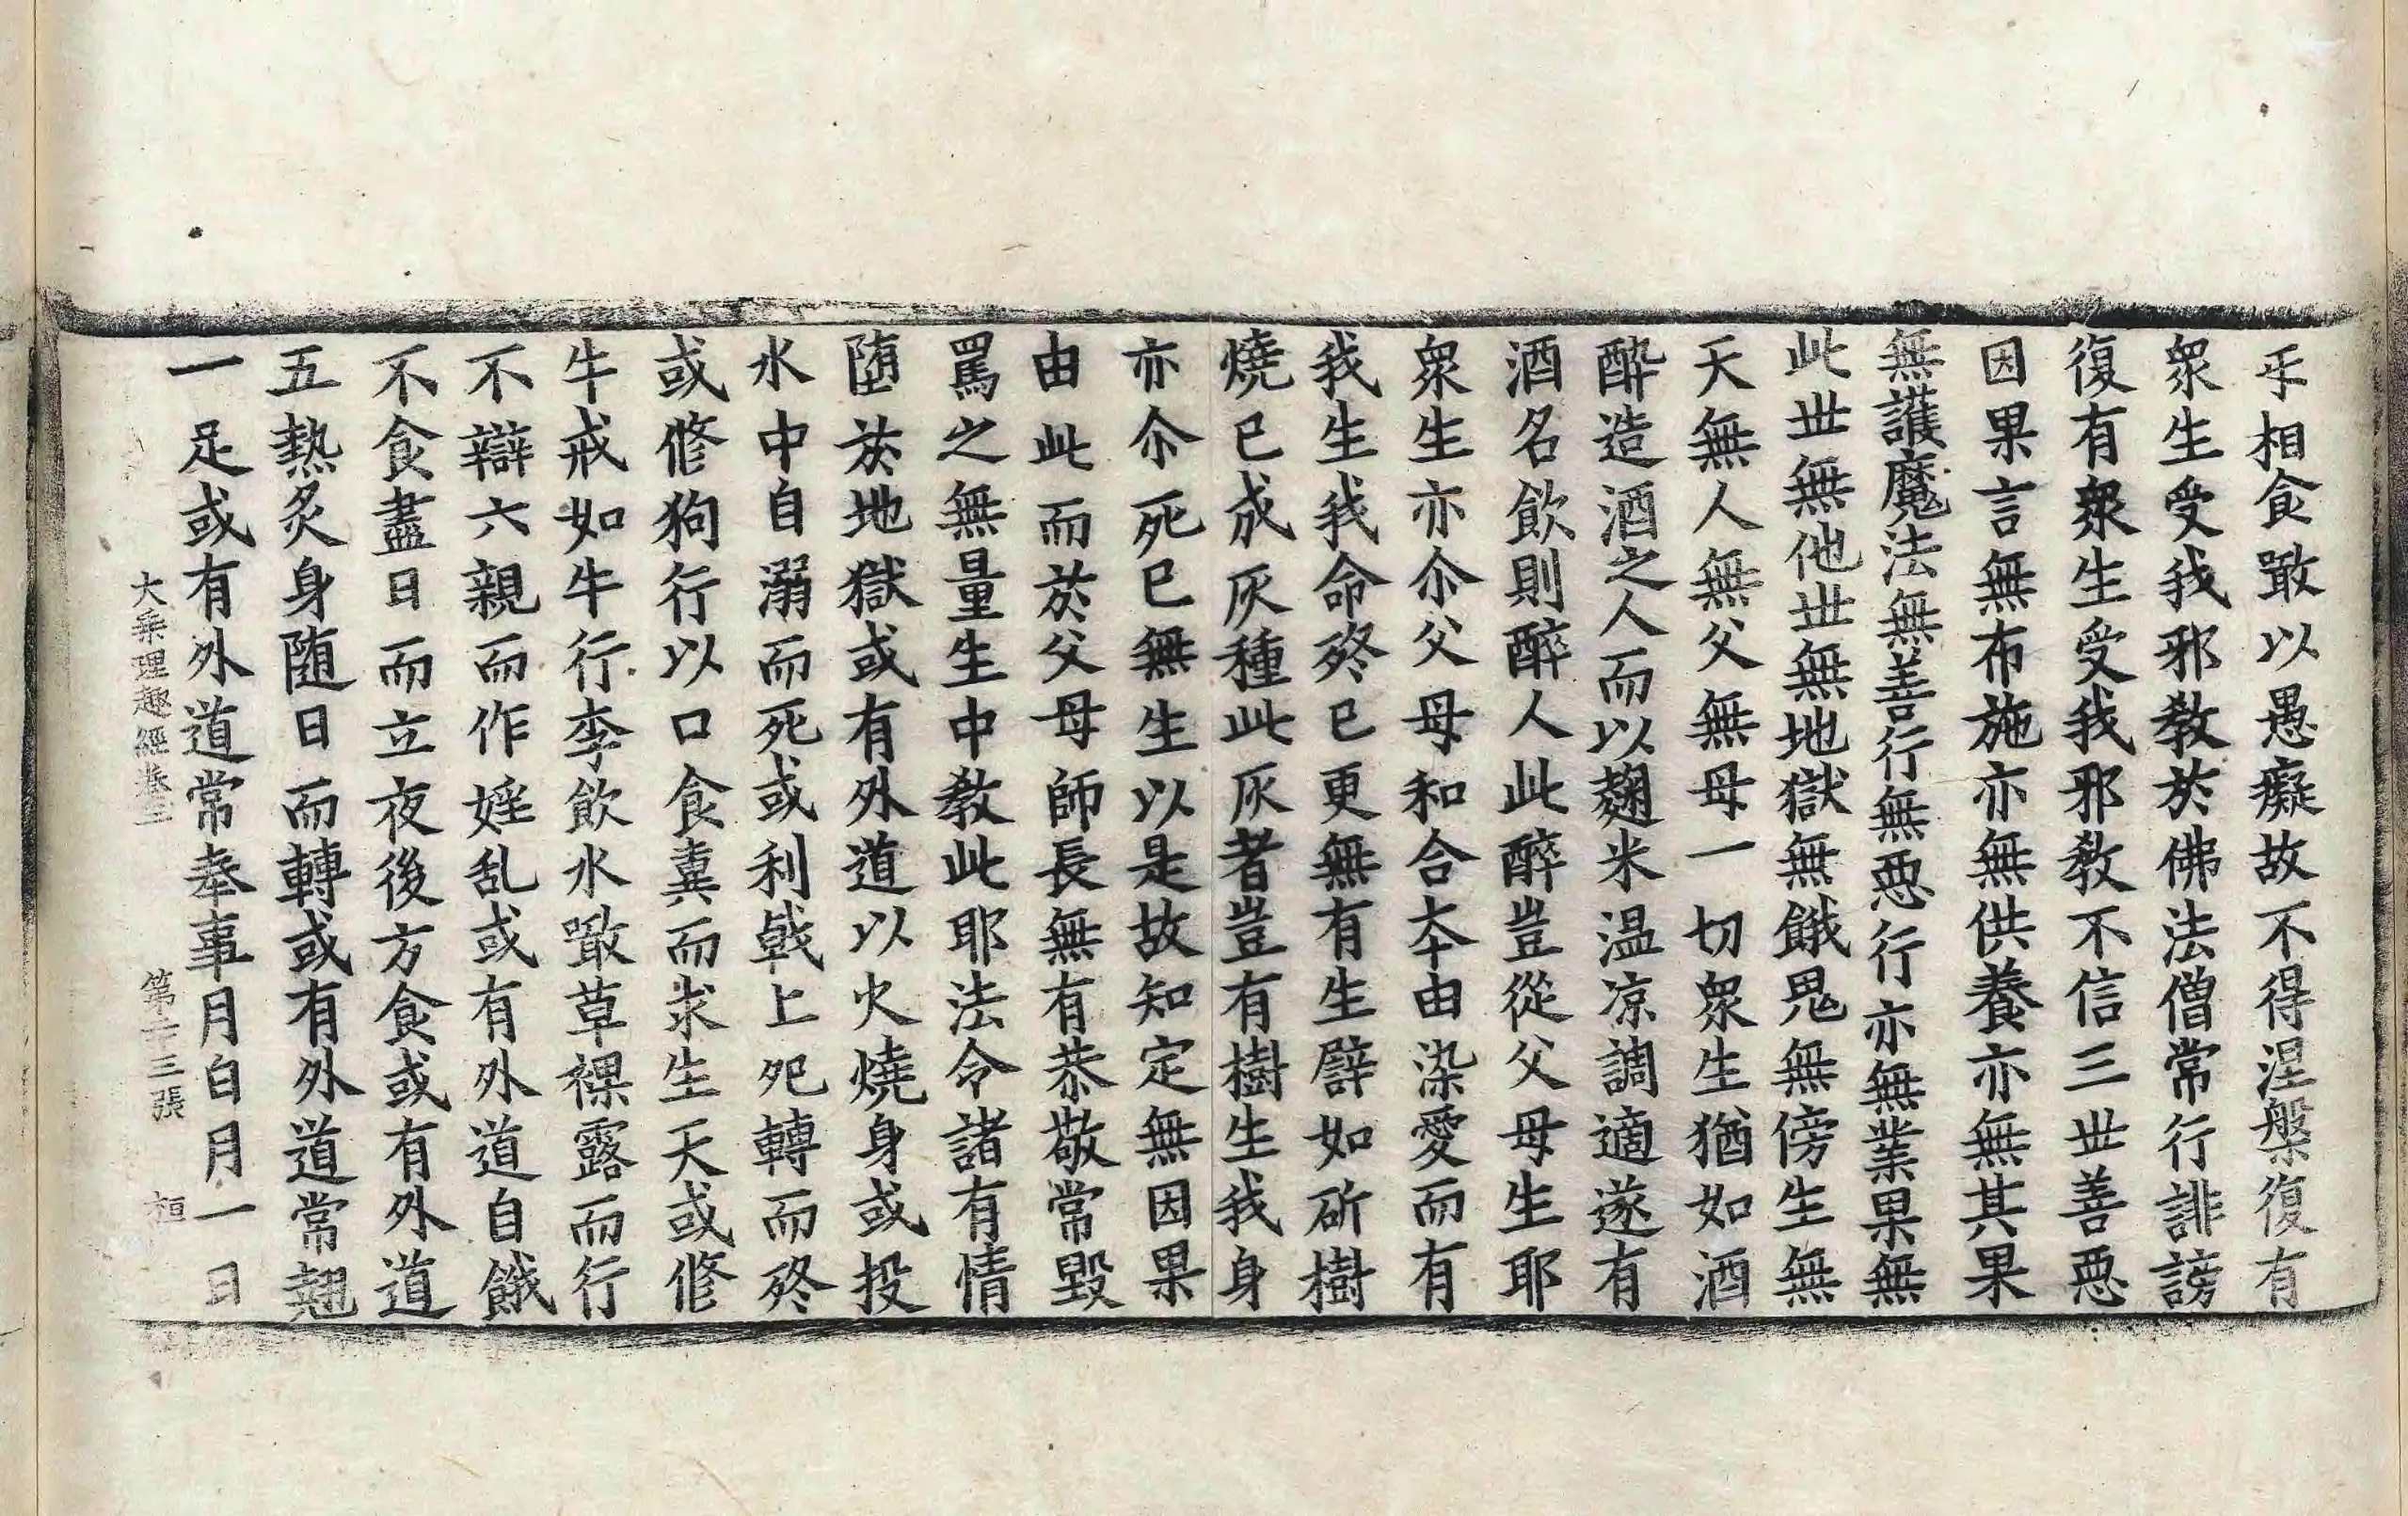 乎相食噉以愚癡故不得涅槃復有
衆生受我邪教於佛法僧常行誹謗
復有衆生受我邪教不信三世善惡
因果言無布施亦無供養亦無其果
無護魔法無善行無惡行亦無業果無
此世無他世無地獄無餓鬼無傍生無
天無人無父無母一切衆生猶如酒
醉造酒之人而以麹米温凉調適遂有
酒名飲則醉人此醉豈從父母生耶
衆生亦尒父母和合夲由染愛而有
我生我命終已更無有生譬如斫樹
燒已成灰種此灰者豈有樹生我身
亦尒死已無生以是故知定無因果
由此而於父母師長無有恭敬常毀
罵之無量生中教此耶法令諸有情
墮於地獄或有外道以火燒身或投
水中自溺而死或利戟上𣦸轉而終
或修狗行以口食糞而求生天或修
牛戒如牛行李飲水噉草裸露而行
不辯六親而作婬乱或有外道自餓
不食盡日而立夜後方食或有外道
五熱炙身随日而轉或有外道常翹
一足或有外道常奉事月白月一日
大乘理趣經卷三　第二十三張　桓